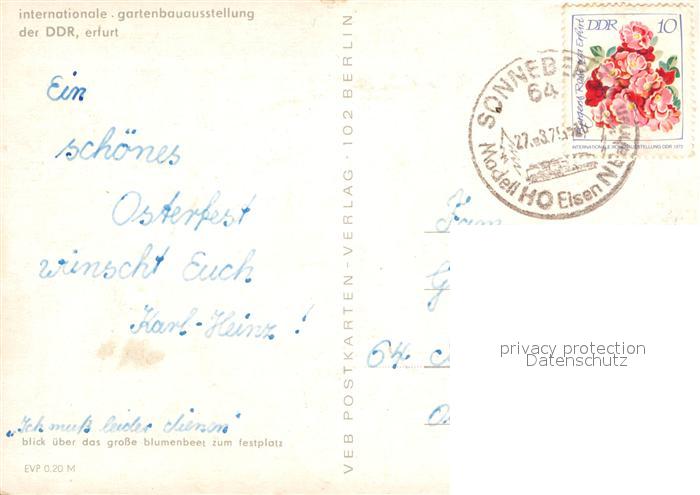 internationale gartenbauausstellung
der DDR, erfurt
Ein
schönes
Osterfest
wünscht Euch
Karl-Heinz!
„Ich muß leider dienen"
blick über das große blumenbeet zum festplatz
EVP 0.20 M
VEB POSTKARTEN-VERLAG · 102 BERLIN
DDR 10
INTERNATIONALE ROSENAUSSTELLUNG DDR 1972
SONNEBERG
64
Modell HO Eisen
Fam.
G
64
O
privacy protection
Datenschutz